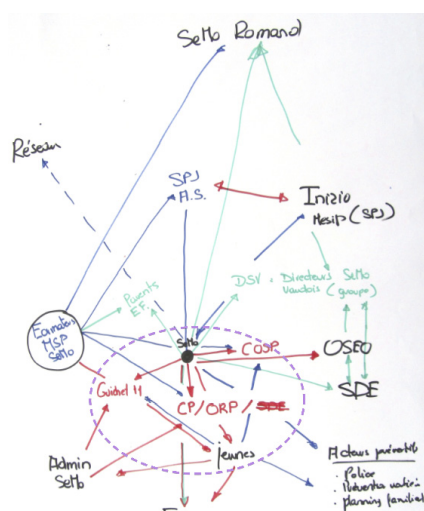 SeMo Romand
Réseau
SPJ
A.S.
Inizio
Mesip (SPJ)
DSV + Directeurs SeMo
Vaudois (groupe)
Parents
E.F.
Formateurs
MSP
SeMo
SeMo
COSP
OSEO
Guichet
CP/ORP/SDE
SDE
jeunes
Admin
SeMo
Acteurs
. Police
. planning familial